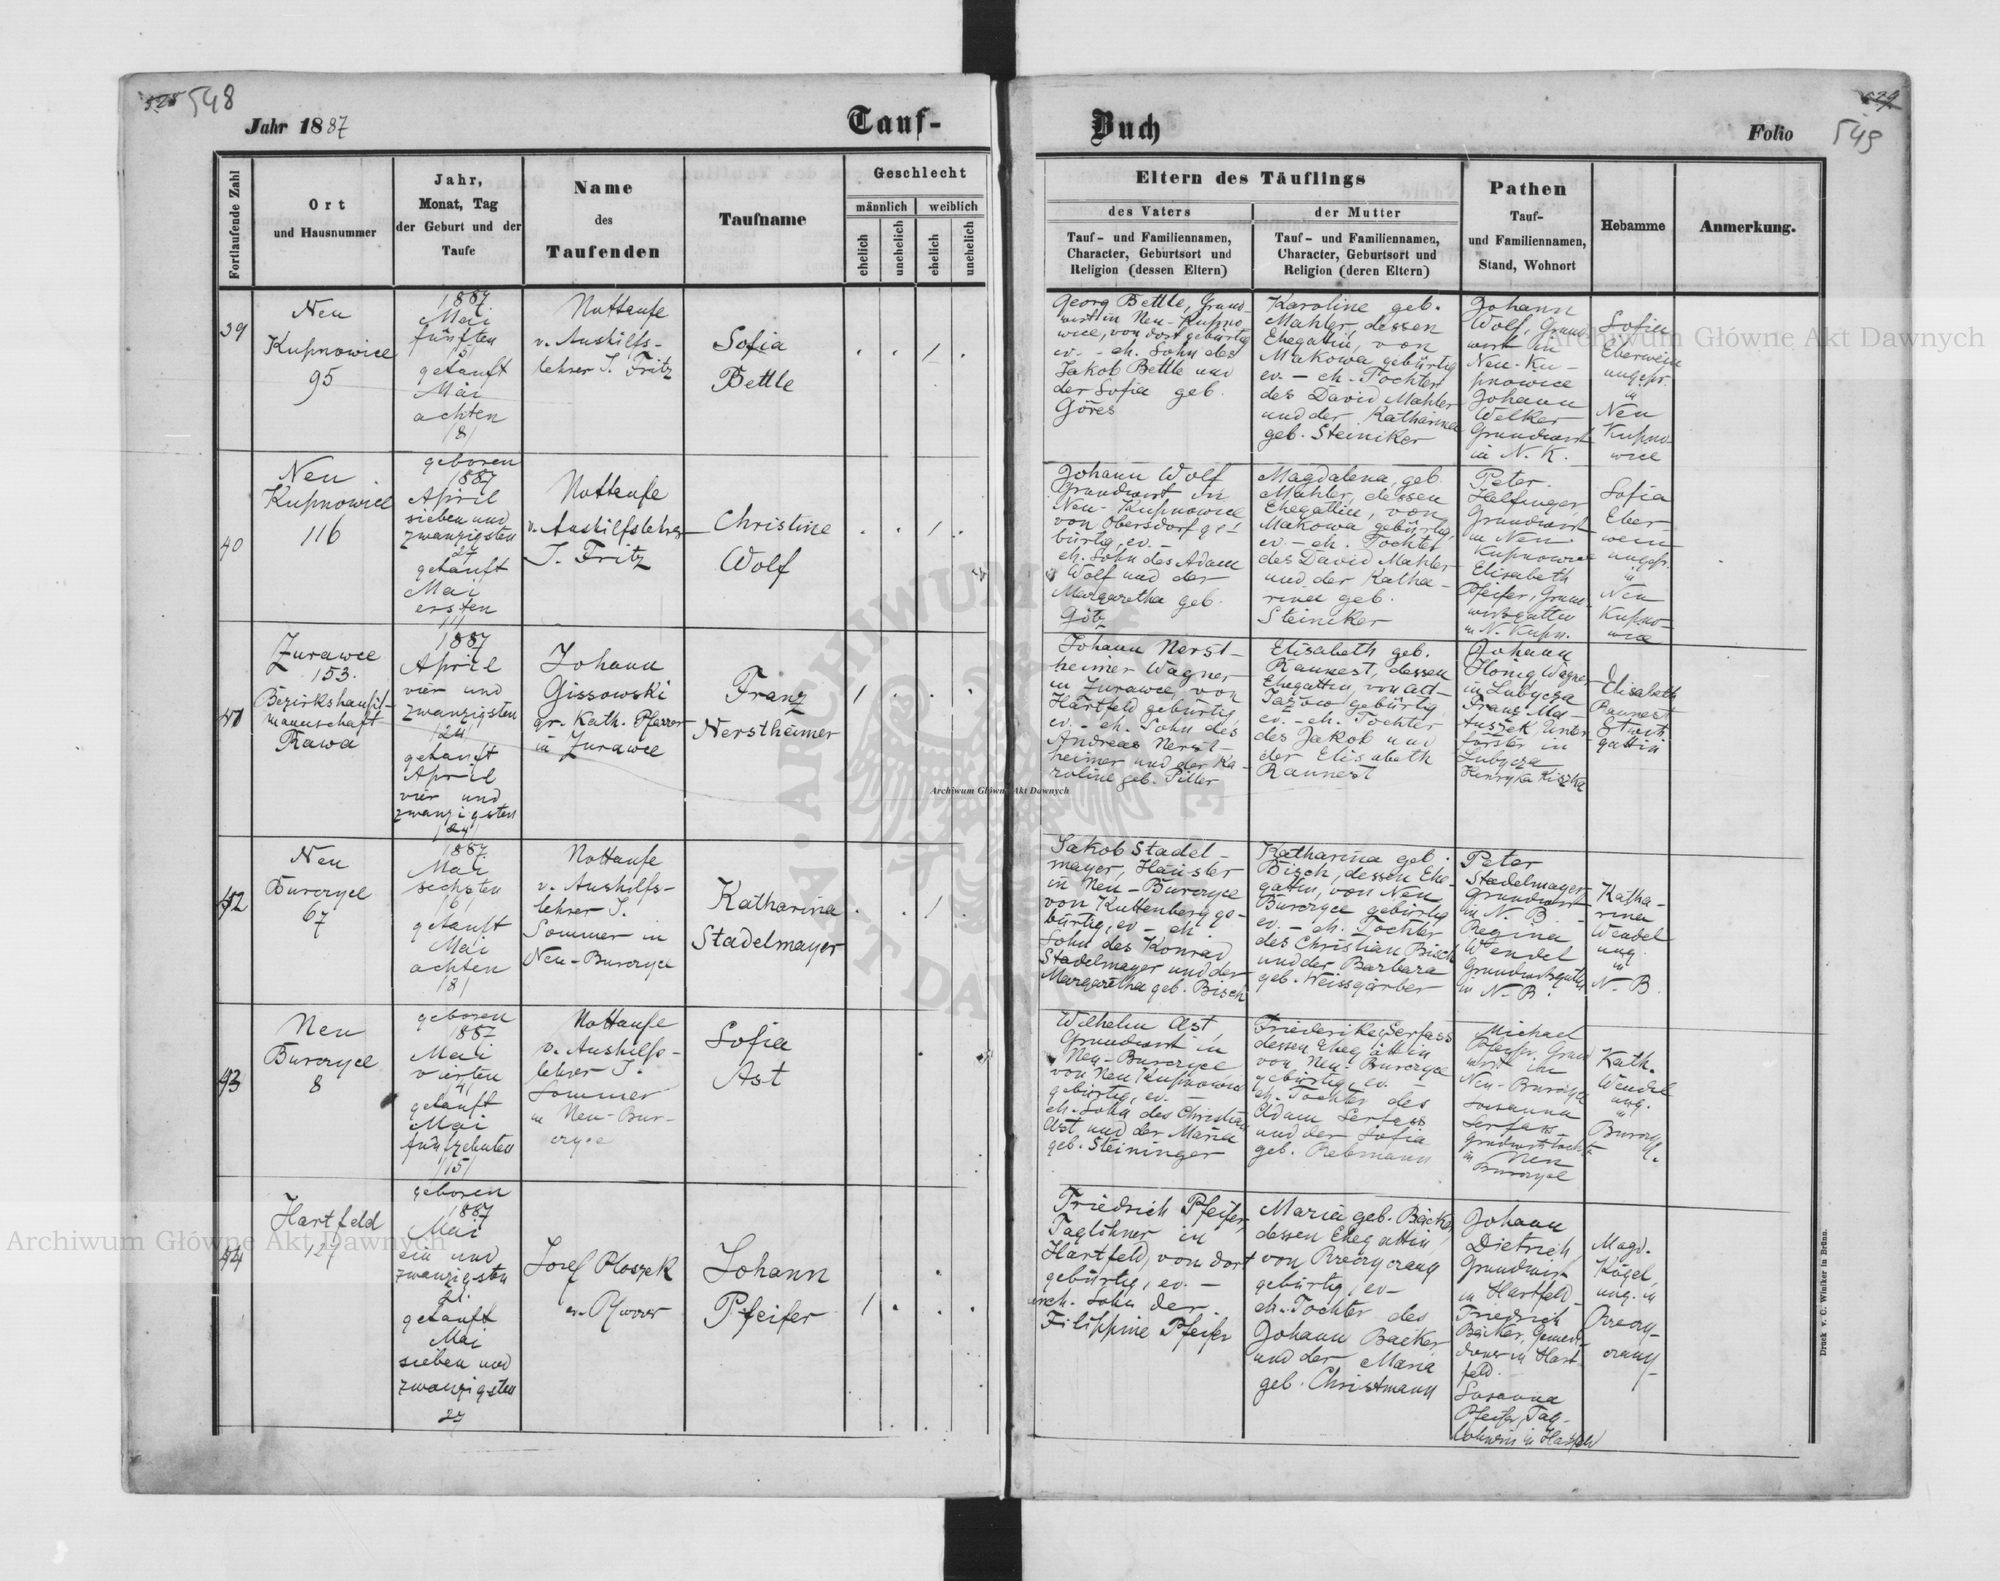 548
Jahr 1887
Tauf-
Fortlaufende Zahl
Ort
und Hausnummer
Jahr,
Monat, Tag
der Geburt und der
Taufe
Name
des
Taufenden
Taufname
Geschlecht
männlich
weiblich
ehelich
unehelich
ehelich
unehelich
39
Neu
Kupnowice
95
1887
Mai
fünften
/5/
getauft
Mai
achten
/8/
Nottaufe
v. Aushilfs-
lehrer J. Fritz
Sofia
Bettle
1
40
Neu
Kupnowice
116
geboren
1887
April
sieben und
zwanzigsten
27
getauft
Mai
ersten
/1/
Nottaufe
v. Aushilfslehrer
J. Fritz
Christine
Wolf
1
41
Zurawce
153.
Bezirkshaupt-
mannschaft
Rawa
1887
April
vier und
zwanzigsten
/24/
getauft
April
vier und
zwanzigsten
/24/
Johann
Gissowski
gr. Kath. Pfarrer
in Zurawce
Franz
Nerstheimer
1
42
Neu
Burczyce
67
1887
Mai
sechsten
/6/
getauft
Mai
achten
/8/
Nottaufe
v. Aushilfs-
lehrer J.
Sommer in
Neu-Burczyce
Katharina
Stadelmayer
1
43
Neu
Burczyce
8
geboren
1887
Mai
vierten
/4/
getauft
Mai
fünfzehnten
/15/
Nottaufe
v. Aushilfs-
lehrer J.
Sommer
in Neu-Bur-
czyce
Sofia
Ast
44
Hartfeld
127
geboren
1887
Mai
ein und
zwanzigsten
21.
getauft
Mai
sieben und
zwanzigsten
27
Josef Ploszek
ev. Pfarrer
Johann
Pfeifer
1
Buch
Folio
549
Eltern des Täuflings
des Vaters
der Mutter
Tauf- und Familiennamen,
Character, Geburtsort und
Religion (dessen Eltern)
Tauf- und Familiennamen,
Character, Geburtsort und
Religion (deren Eltern)
Pathen
Tauf-
und Familiennamen,
Stand, Wohnort
Hebamme
Anmerkung.
Georg Bettle, Grund-
wirt in Neu-Kupno
wice, von dort gebürtig
ev. - eh. Sohn des
Jakob Bettle und
der Sofia geb.
Göres
Karoline geb.
Mahler, dessen
Ehegattin, von
Makowa gebürtig
ev. - eh. Tochter
des David Mahler
und der Katharina
geb. Steiniker
Johann
Wolf, Grund
wirt in
Neu-Ku-
pnowice
Johann
Welker
Grundwirt
in N. K.
Sofia
Eberwein
ungepr.
in
Neu
Kupno-
wice
Johann Wolf
Grundwirt in
Neu-Kupnowice
von Obersdorf ge-
bürtig, ev. -
eh. Sohn des Adam
Wolf und der
Margaretha geb.
Götz
Magdalena, geb.
Mahler, dessen
Ehegattin, von
Makowa gebürtig,
ev. - eh. Tochter
des David Mahler
und der Katha-
rina geb.
Steiniker
Peter
Helfinger
Grundwirt
in Neu
Kupnowice
Elisabeth
Pfeifer, Grund-
wirtsgattin
in N. Kupn.
Sofia
Eber
wein
ungepr.
in
Neu
Kupno-
wice
Johann Nerst-
heimer Wagner
in Zurawce, von
Hartfeld gebürtig,
ev. - eh. Sohn des
Andreas Nerst-
heimer und der Ka-
roline geb. Piller
Elisabeth geb.
Raunest, dessen
Ehegattin, von alt-
Jazow gebürtig
ev. - eh. Tochter
des Jakob und
der Elisabeth
Raunest
Johann
Hönig Wagner
in Lubycza
Franz Ma-
tuszek Unter
förster in
Lubycza
Henryka Kiszka
Elisabeth
Raunest
gattin
Jakob Stadel-
mayer, Häusler
in Neu-Burczyce
von Kuttenberg ge-
bürtig, ev - eh.
Sohn des Konrad
Stadelmayer und der
Margaretha geb. Bisch
Katharina geb.
Bisch, dessen Ehe-
gattin, von Neu
Burczyce gebürtig
ev. - eh. Tochter
des Christian Bisch
und der Barbara
geb. Weissgärber
Peter
Stadelmayer
Grundwirt
in N. B. -
Regina
Wendel
Grundwirtsgattin
in N. B.
Katha-
rina
Wendel
ung.
in
N. B.
Wilhelm Ast,
Grundwirt in
Neu-Burczyce
von Neu Kupnowice
gebürtig, ev. -
eh. Sohn des Christian
Ast und der Maria
geb. Steininger
Friederike Serfass
dessen Ehegattin
von Neu-Burczyce
gebürtig, ev. -
eh. Tochter des
Adam Serfass
und der Sofia
geb. Rebmann
Michael
Pfeifer, Grund
wirt in
Neu-Burczyce
Susanna
Serfass
Grundwirtstocht.
in Neu
Burczyce
Kath.
Wendel
ung.
in
Burczyc.
Friedrich Pfeifer,
Taglöhner in
Hartfeld, von dort
gebürtig, ev. -
uneh. Sohn der
Filippine Pfeifer
Maria geb. Bäcker
dessen Ehegattin,
von Rzeczyczany
gebürtig, ev -
eh. Tochter des
Johann Bäcker
und der Maria
geb. Christmann
Johann
Dietrich,
Grundwirt
in Hartfeld
Friedrich
Bäcker, Gemein-
in Hart
feld.
Susanna
Pfeifer, Tag-
löhnerin in Hartfeld
Magd.
Kögel,
ung. in
Rzeczy-
czany
Druck v. C. Winiker in Brünn.
Archiwum Główne Akt Dawnych
Archiwum Główne Akt Dawnych
Archiwum Główne Akt Dawnych